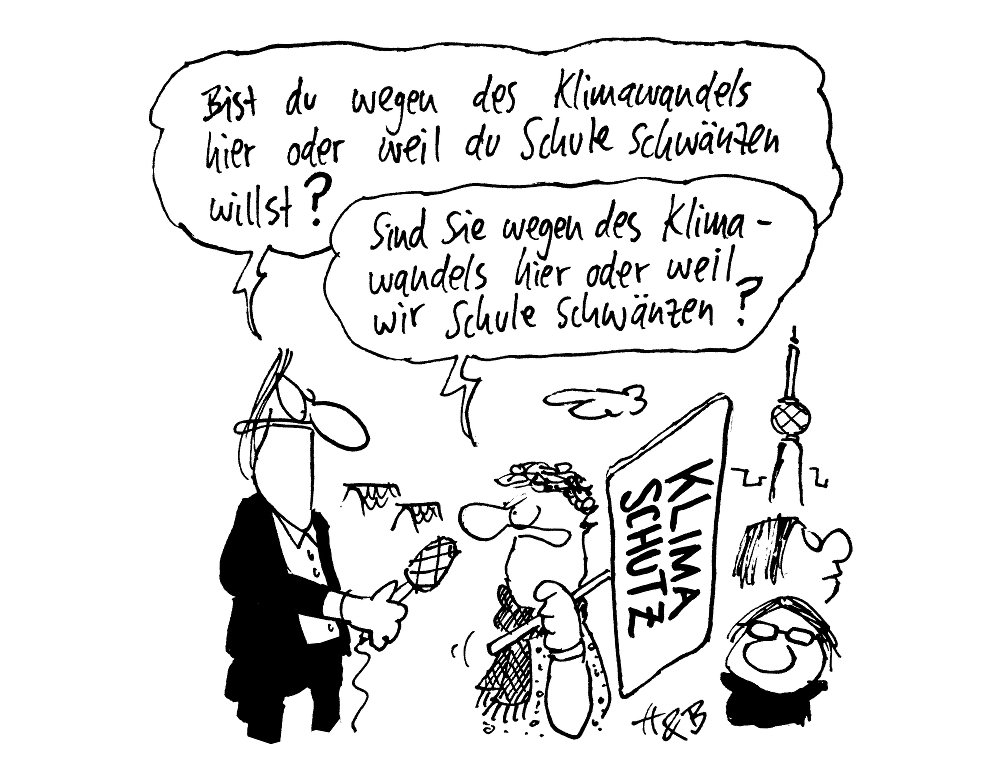 Bist du wegen des Klimawandels
hier oder weil du Schule schwänzen
willst?
Sind Sie wegen des Klima-
wandels hier oder weil
wir Schule schwänzen?
KLIMA
SCHUTZ
H&B